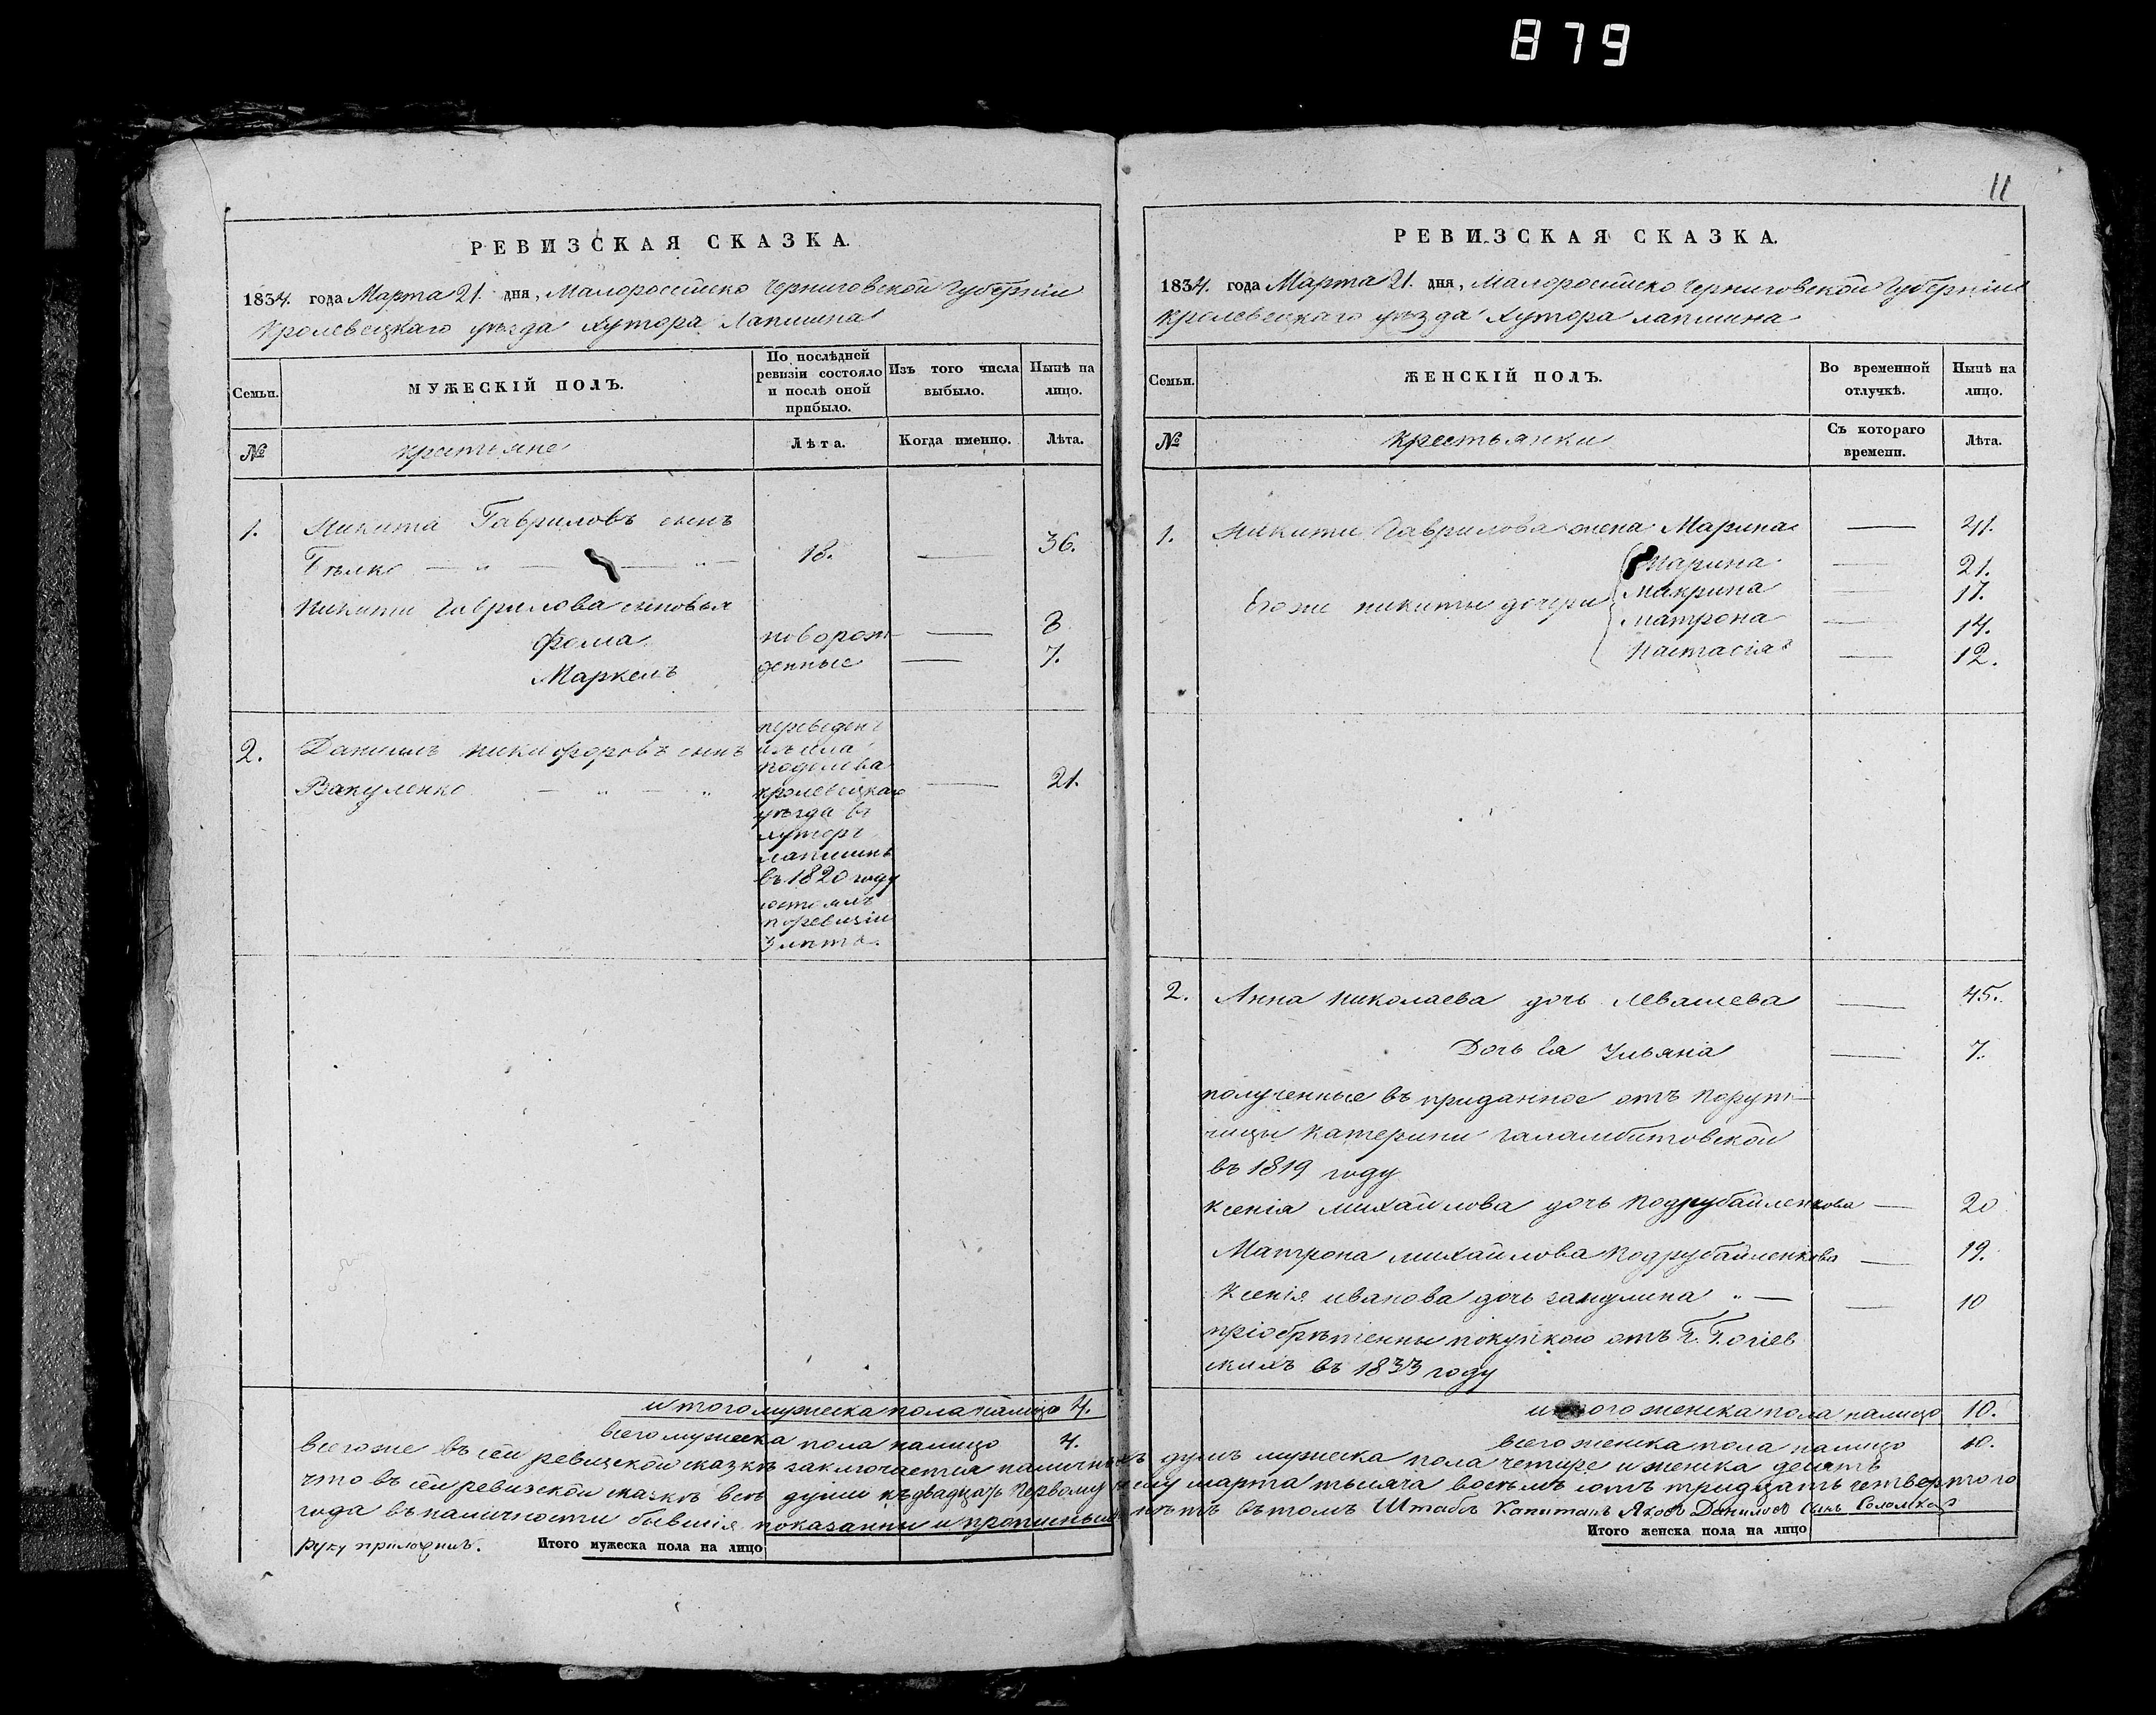 879
РЕВИЗСКАЯ СКАЗКА.
1834. года Марта 21. дня, Малороссійско Черниговской Губерніи
Кролевецкаго уѣзда Хутора Лапшина
Семьи.
МУЖЕСКІЙ ПОЛЪ.
По послѣдней ревизіи состояло и послѣ оной прибыло.
Изъ того числа выбыло.
Нынѣ на лицо.
№
крестьяне
Лѣта.
Когда именно.
Лѣта.
1. Никита Гавриловъ сынъ
18. — 36.
Никити Гаврилова сыновья
Фома новорож- — 8
Маркелъ денные — 7.
2. Даниилъ Никифоровъ сынъ
Вакуленко — " — " — 21.
переведенъ
кролевецкаго
уѣзда въ
хуторъ
лапшинъ
въ 1820 году
состоялъ
по ревизіи
3 лѣта.
итого мужеска пола налицо 4.
всего мужеска пола налицо 4.
11
РЕВИЗСКАЯ СКАЗКА.
1834. года Марта 21. дня, Малоросійско Черниговской Губерніи
Кролевецкаго уѣзда Хутора лапшина
Семьи.
ЖЕНСКІЙ ПОЛЪ.
Во временной отлучкѣ.
Нынѣ на лицо.
№
крестьянки
Съ котораго времени.
Лѣта.
1. Никити Гаврилова жена Марина — 41.
Марина — 21.
Его же никиты дочери Макрина — 17.
Матрона — 14.
Настасія — 12.
2. Анна Николаева дочь Левашева — 45.
Дочь Ея Ульяна — 7.
полученные въ приданное отъ Порут-
чицы Катерини
въ 1819 году
Ксенія михайлова дочь Подрубайленкова — 20
Матрона михайлова Подрубайленкова — 19.
Ксенія иванова дочь " — — 10
пріобрѣтенны покупкою отъ
въ 1833 году
итого женска пола налицо 10.
всего женска пола налицо 10.
всего же въ сей ревизской сказкѣ заключается наличныхъ душъ мужеска пола четыре и женска десять
что въ сей ревизской сказкѣ всѣ души къ двадцать первому числу марта тысяча восемъ сотъ тридцать четвертого
года въ наличности бывшія показанны и въ томъ Штабсъ Капитанъ Яковъ Даниловъ Сынъ
руку приложилъ. Итого мужеска пола на лицо
Итого женска пола на лицо